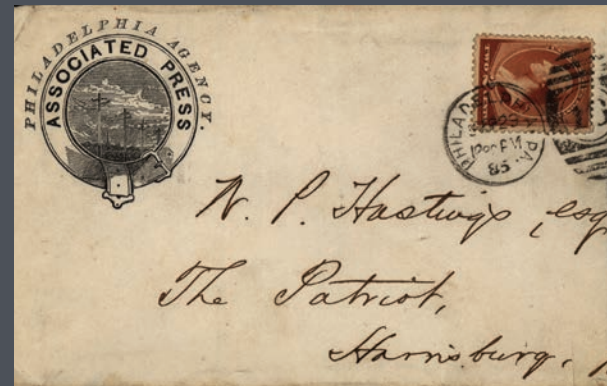 PHILADELPHIA AGENCY.
ASSOCIATED PRESS
PHILADE PA.
12 00 PM
85
W. P. Hastings, esq
The Patriot,
Harrisburg,